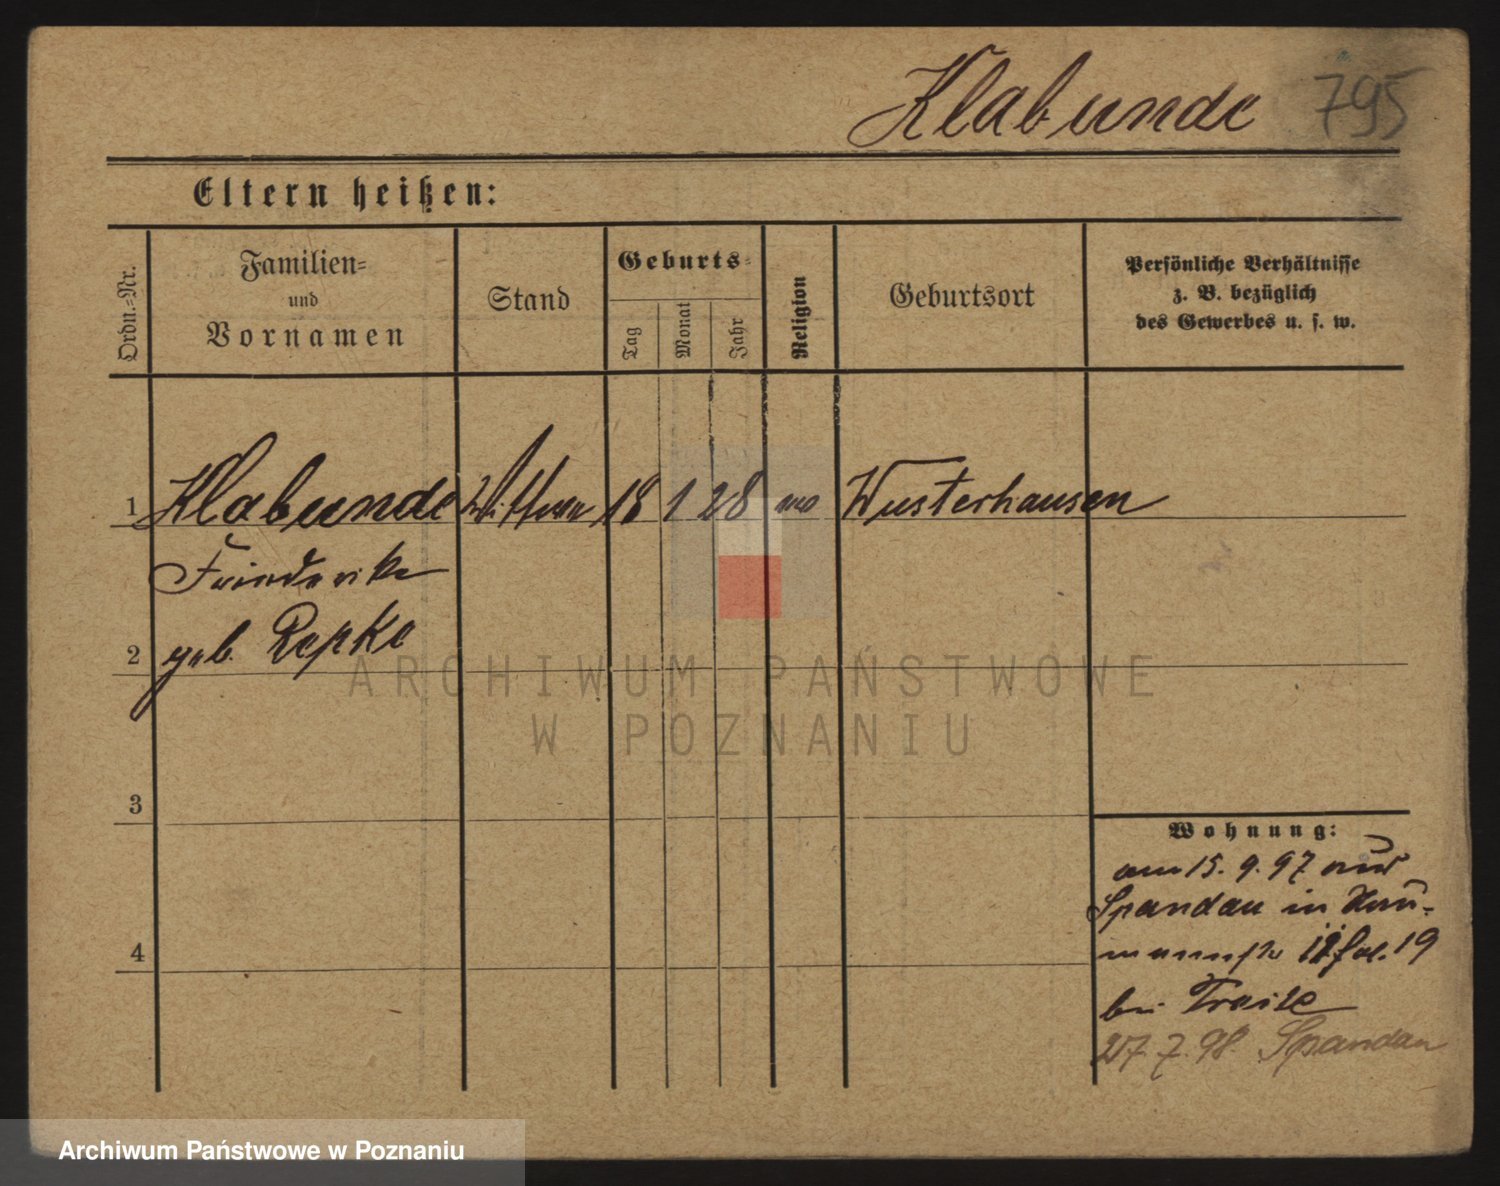 Klabunde 795
Eltern heißen:
Ordn.=Nr.
Familien=
und
Vornamen
Stand
Geburts=
Tag
Monat
Jahr
Religion
Geburtsort
Persönliche Verhältnisse
z. B. bezüglich
des Gewerbes u. s. w.
1 Klabunde Wittwe 18 1 28 Wusterhausen
Friederike
2 geb. Repke
3
4
Wohnung:
am 15. 9. 97 aus
Spandau in
19
bei
27. 7. 98. Spandau
ARCHIWUM PAŃSTWOWE
W POZNANIU
Archiwum Państwowe w Poznaniu